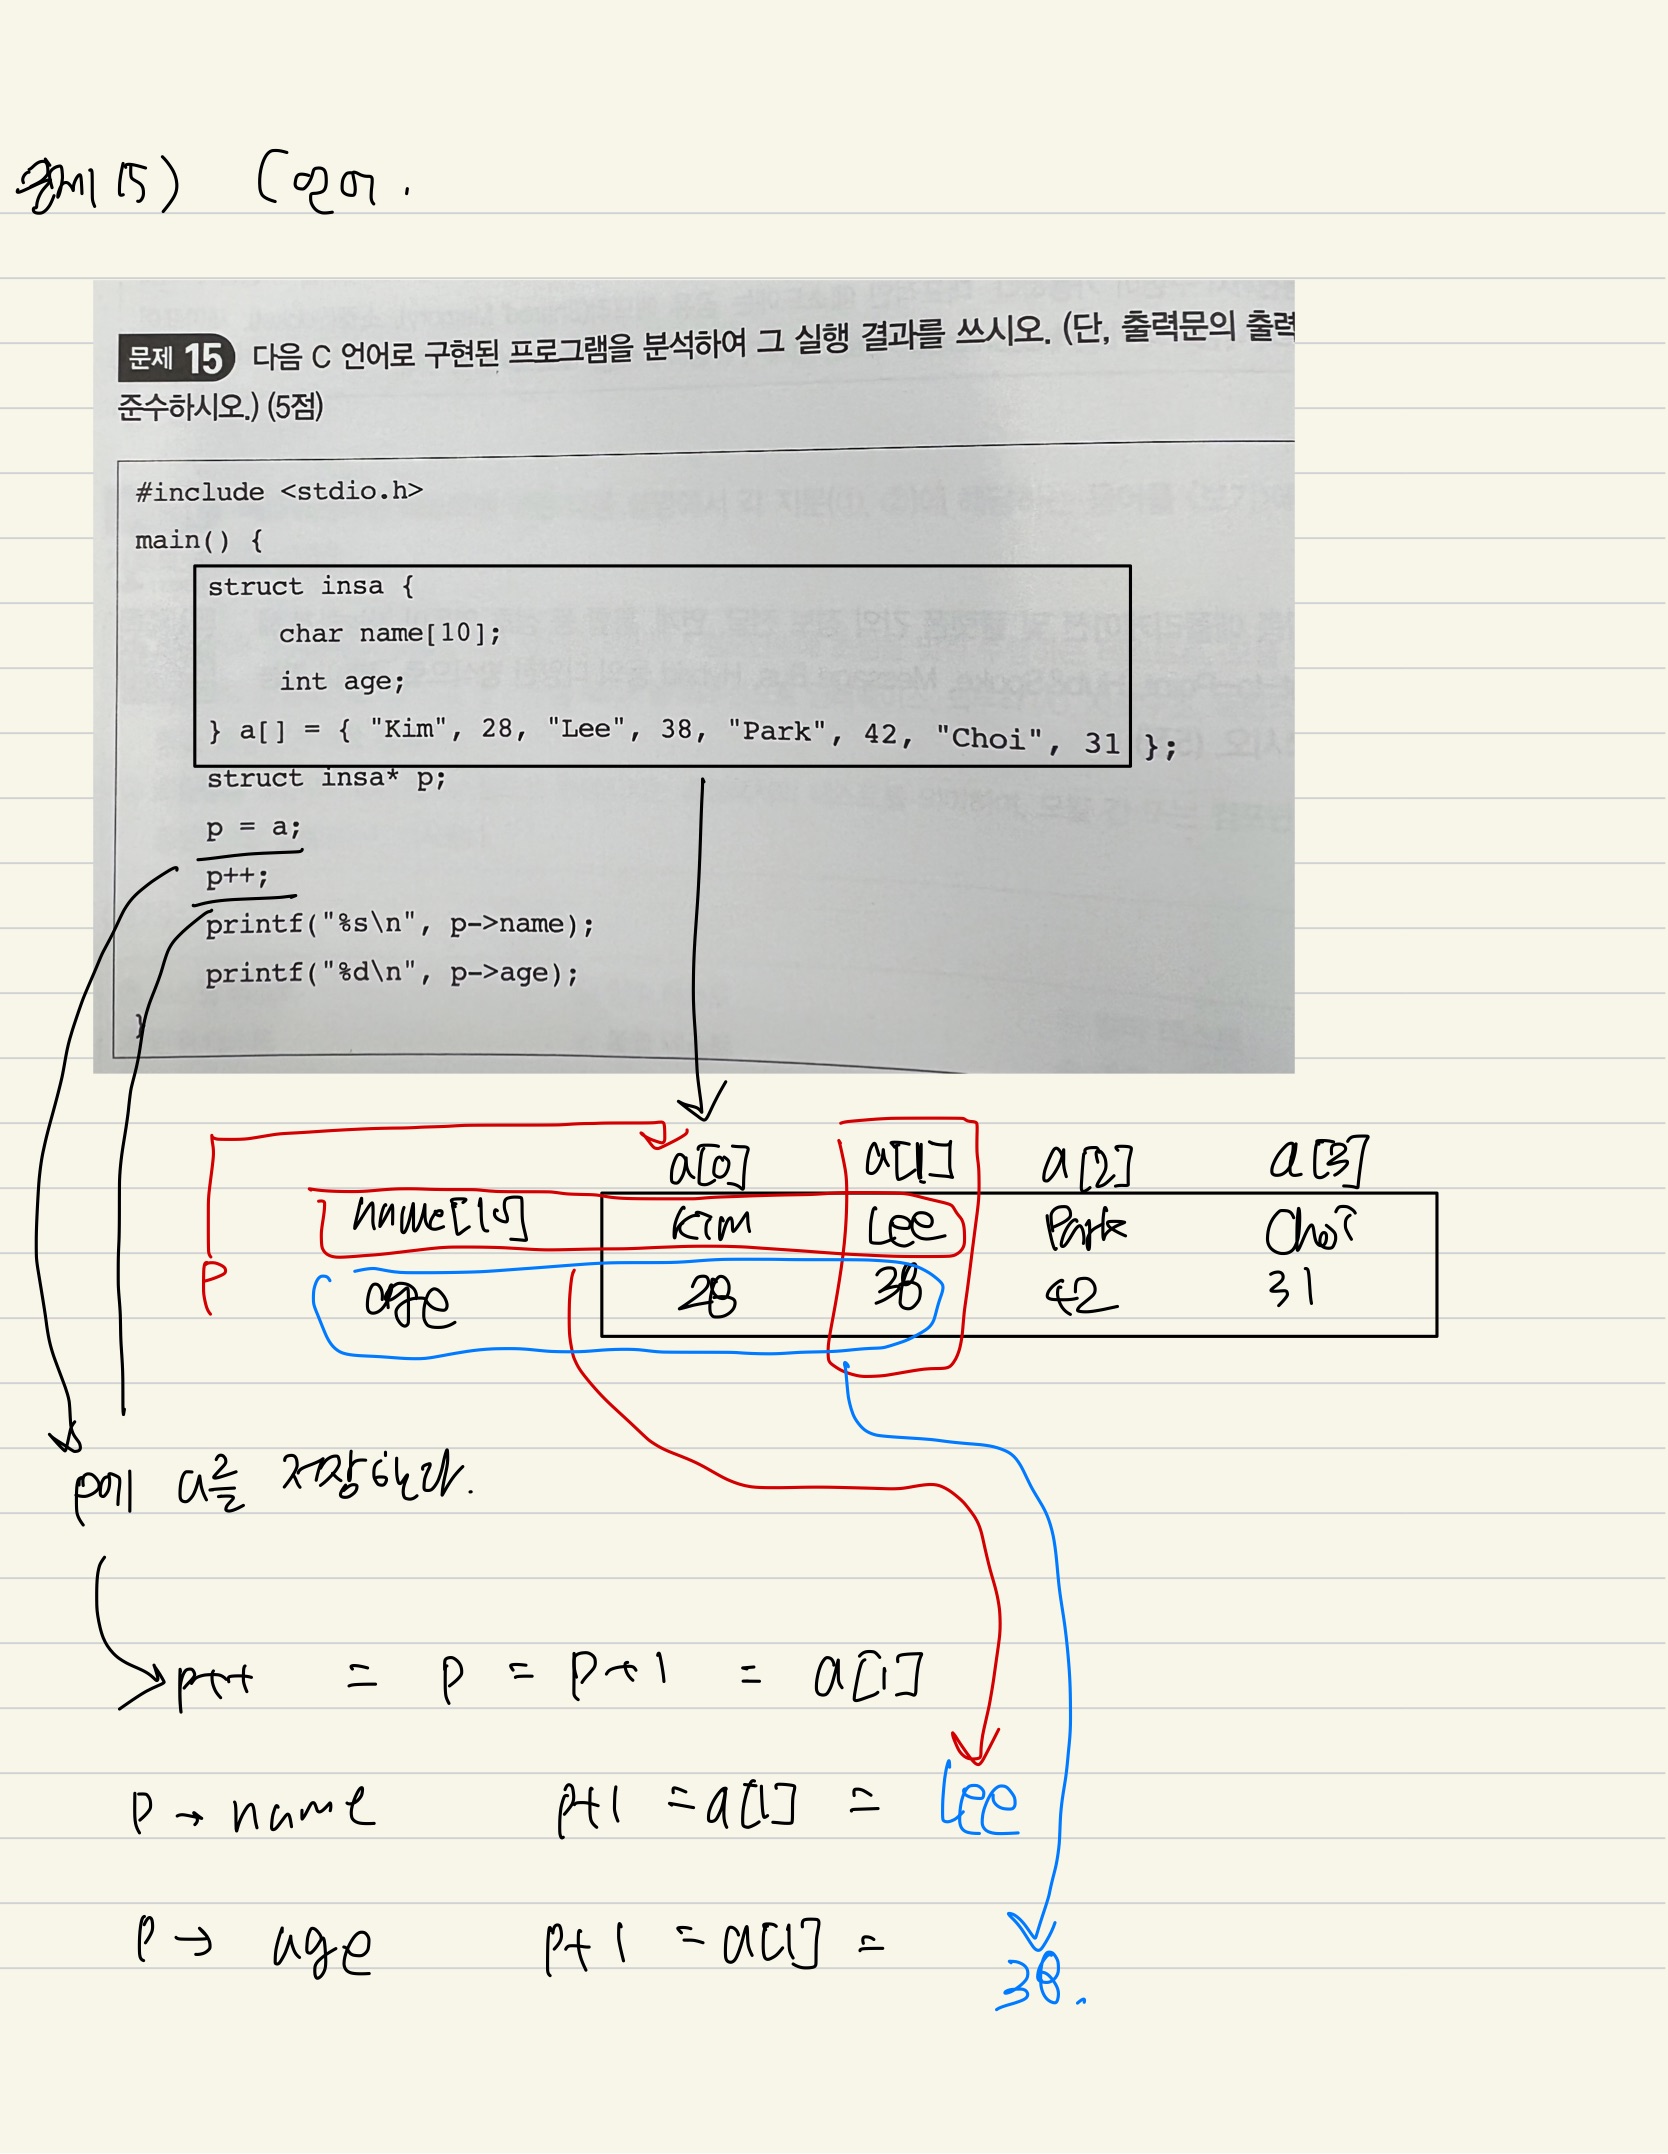 문제 15) C언어.
문제 15 다음 C 언어로 구현된 프로그램을 분석하여 그 실행 결과를 쓰시오. (단, 출력문의 출력
준수하시오.) (5점)
#include <stdio.h>
main() {
struct insa {
char name[10];
int age;
} a[] = { "Kim", 28, "Lee", 38, "Park", 42, "Choi", 31 };
struct insa* p;
p = a;
p++;
printf("%s\n", p->name);
printf("%d\n", p->age);
}
a[0] a[1] a[2] a[3]
name[10] Kim Lee Park Choi
P age 28 38 42 31
p에 a를 저장한다.
p++ = p = p+1 = a[1]
P → name p+1 = a[1] = Lee
P → age p+1 = a[1] =
38.